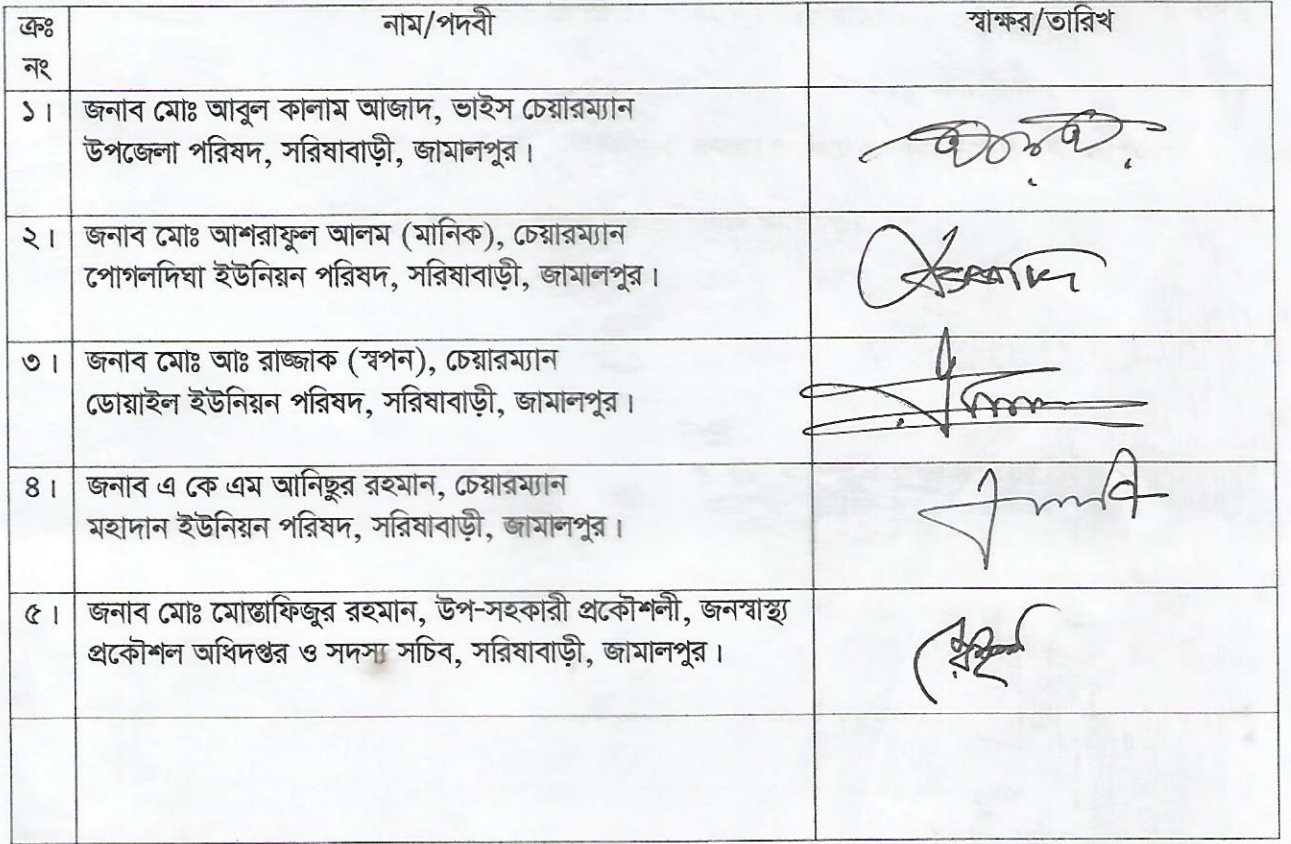 ক্রঃ নাম/পদবী স্বাক্ষর/তারিখ
নং
১। জনাব মোঃ আবুল কালাম আজাদ, ভাইস চেয়ারম্যান
উপজেলা পরিষদ, সরিষাবাড়ী, জামালপুর।
২। জনাব মোঃ আশরাফুল আলম (মানিক), চেয়ারম্যান
পোগলদিঘা ইউনিয়ন পরিষদ, সরিষাবাড়ী, জামালপুর।
৩। জনাব মোঃ আঃ রাজ্জাক (স্বপন), চেয়ারম্যান
ডোয়াইল ইউনিয়ন পরিষদ, সরিষাবাড়ী, জামালপুর।
৪। জনাব এ কে এম আনিছুর রহমান, চেয়ারম্যান
মহাদান ইউনিয়ন পরিষদ, সরিষাবাড়ী, জামালপুর।
৫। জনাব মোঃ মোস্তাফিজুর রহমান, উপ-সহকারী প্রকৌশলী, জনস্বাস্থ্য
প্রকৌশল অধিদপ্তর ও সদস্য সচিব, সরিষাবাড়ী, জামালপুর।